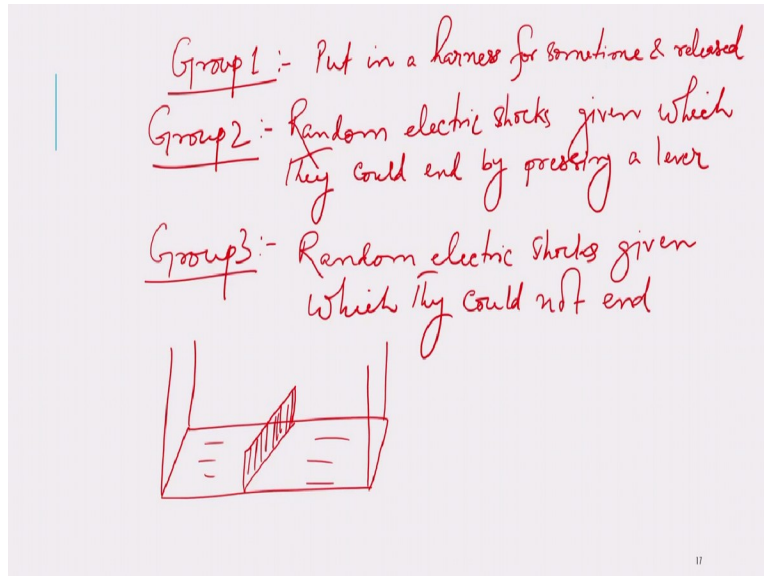 Group1 :- Put in a harness for sometime & released
Group2 :- Random electric shocks given which
They could end by pressing a lever
Group3 :- Random electric shocks given
which They could not end
17